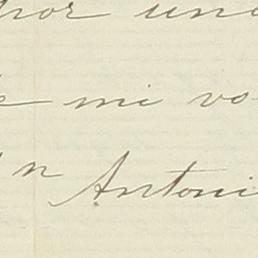 por una
e mi vo-
n Antoni